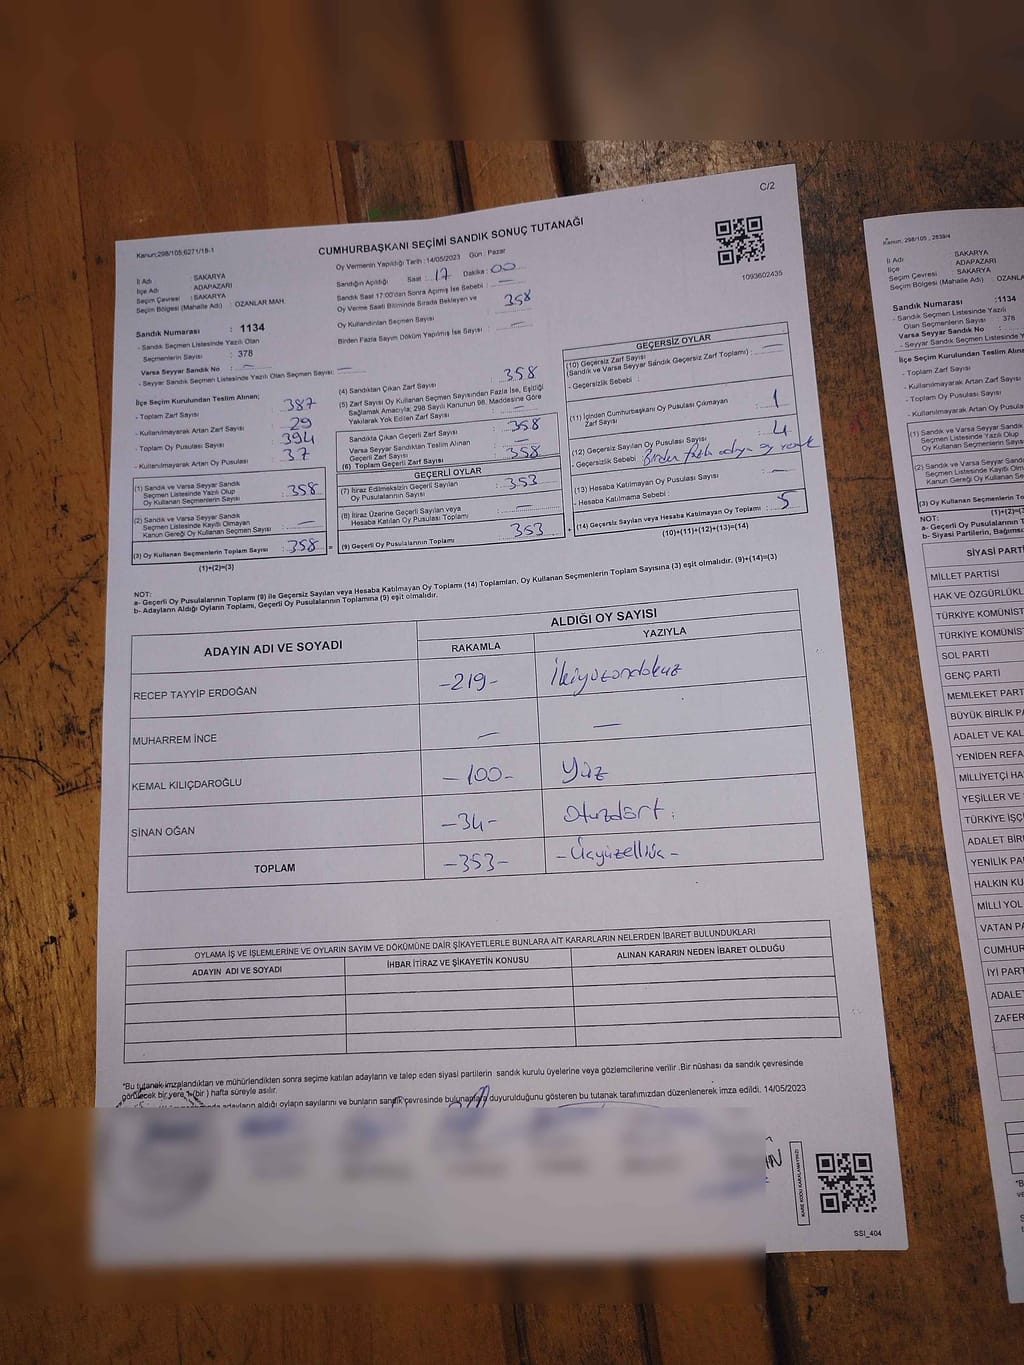 C/2
Kanun;298/105;6271/18-1
CUMHURBAŞKANI SEÇİMİ SANDIK SONUÇ TUTANAĞI
1093602435
İl Adı : SAKARYA
İlçe Adı : ADAPAZARI
Seçim Çevresi : SAKARYA
Seçim Bölgesi (Mahalle Adı) : OZANLAR MAH.
Sandık Numarası : 1134
- Sandık Seçmen Listesinde Yazılı Olan
Seçmenlerin Sayısı : 378
Varsa Seyyar Sandık No : —
- Seyyar Sandık Seçmen Listesinde Yazılı Olan Seçmen Sayısı: —
Oy Vermenin Yapıldığı Tarih : 14/05/2023 Gün : Pazar
Sandığın Açıldığı Saat : 17 Dakika : 00
Sandık Saat 17:00'dan Sonra Açılmış İse Sebebi : —
Oy Verme Saati Bitiminde Sırada Bekleyen ve
Oy Kullandırılan Seçmen Sayısı : 358
Birden Fazla Sayım Döküm Yapılmış İse Sayısı : —
İlçe Seçim Kurulundan Teslim Alınan;
- Toplam Zarf Sayısı : 387
- Kullanılmayarak Artan Zarf Sayısı : 29
- Toplam Oy Pusulası Sayısı : 394
- Kullanılmayarak Artan Oy Pusulası : 37
(1) Sandık ve Varsa Seyyar Sandık
Seçmen Listesinde Yazılı Olup
Oy Kullanan Seçmenlerin Sayısı : 358
(2) Sandık ve Varsa Seyyar Sandık
Seçmen Listesinde Kayıtlı Olmayan
Kanun Gereği Oy Kullanan Seçmen Sayısı : —
(3) Oy Kullanan Seçmenlerin Toplam Sayısı : 358
(1)+(2)=(3)
(4) Sandıktan Çıkan Zarf Sayısı : 358
(5) Zarf Sayısı Oy Kullanan Seçmen Sayısından Fazla İse, Eşitliği
Sağlamak Amacıyla; 298 Sayılı Kanunun 98. Maddesine Göre
Yakılarak Yok Edilen Zarf Sayısı : —
Sandıkta Çıkan Geçerli Zarf Sayısı : 358
Varsa Seyyar Sandıktan Teslim Alınan
Geçerli Zarf Sayısı : —
(6) Toplam Geçerli Zarf Sayısı : 358
GEÇERLİ OYLAR
(7) İtiraz Edilmeksizin Geçerli
Oy Pusulalarının Sayısı : 353
(8) İtiraz Üzerine Geçerli Sayılan veya
Hesaba Katılan Oy Pusulası Toplamı : —
(9) Geçerli Oy Pusulalarının Toplamı : 353
GEÇERSİZ OYLAR
(10) Geçersiz Zarf Sayısı : —
(Sandık ve Varsa Seyyar Sandık Geçersiz Zarf Toplamı)
- Geçersizlik Sebebi :
(11) İçinden Cumhurbaşkanı Oy Pusulası Çıkmayan
Zarf Sayısı : 1
(12) Geçersiz Sayılan Oy Pusulası Sayısı : 4
- Geçersizlik Sebebi : Birden fazla adaya oy
(13) Hesaba Katılmayan Oy Pusulası Sayısı : —
- Hesaba Katılmama Sebebi :
(14) Geçersiz Sayılan veya Hesaba Katılmayan Oy Toplamı : 5
(10)+(11)+(12)+(13)=(14)
NOT:
a- Geçerli Oy Pusulalarının Toplamı (9) ile Geçersiz Sayılan veya Hesaba Katılmayan Oy Toplamı (14) Toplamları, Oy Kullanan Seçmenlerin Toplam Sayısına (3) eşit olmalıdır. (9)+(14)=(3)
b- Adayların Aldığı Oyların Toplamı, Geçerli Oy Pusulalarının Toplamına (9) eşit olmalıdır.
ADAYIN ADI VE SOYADI
ALDIĞI OY SAYISI
RAKAMLA YAZIYLA
RECEP TAYYİP ERDOĞAN -219- İkiyüzondokuz
MUHARREM İNCE — —
KEMAL KILIÇDAROĞLU -100- Yüz
SİNAN OĞAN -34- Otuzdört.
TOPLAM -353- -Üçyüzelliüç-
OYLAMA İŞ VE İŞLEMLERİNE VE OYLARIN SAYIM VE DÖKÜMÜNE DAİR ŞİKAYETLERLE BUNLARA AİT KARARLARIN NELERDEN İBARET BULUNDUKLARI
ADAYIN ADI VE SOYADI İHBAR İTİRAZ VE ŞİKAYETİN KONUSU ALINAN KARARIN NEDEN İBARET OLDUĞU
*Bu tutanak imzalandıktan ve mühürlendikten sonra seçime katılan adayların ve talep eden siyasi partilerin sandık kurulu üyelerine veya gözlemcilerine verilir .Bir nüshası da sandık çevresinde
görülecek bir yere 1 (bir ) hafta süreyle asılır.
adayların aldığı oyların sayılarını ve bunların sandık çevresinde bulunanlara duyurulduğunu gösteren bu tutanak tarafımızdan düzenlenerek imza edildi. 14/05/2023
SSI_404
Kanun, 298/105 , 2839/4
İl Adı SAKARYA
İlçe ADAPAZARI
Seçim Çevresi SAKARYA
Seçim Bölgesi (Mahalle Adı) : OZANLAR
Sandık Numarası :1134
- Sandık Seçmen Listesinde Yazılı
Olan Seçmenlerin Sayısı 378
Varsa Seyyar Sandık No :
- Seyyar Sandık Seçmen Listesinde
İlçe Seçim Kurulundan Teslim
- Toplam Zarf Sayısı
- Kullanılmayarak Artan Zarf
- Toplam Oy Pusulası Sayısı
- Kullanılmayarak Artan Oy
(1) Sandık ve Varsa Seyyar
Seçmen Listesinde
Oy Kullanan
(2) Sandık ve Varsa
Seçmen
Kanun
(3) Oy Kullanan Seçmenlerin
(1)+(2)=
NOT:
a- Geçerli Oy Pusulalarının
b- Siyasi Partilerin, Bağımsız
SİYASİ PARTİ
MİLLET PARTİSİ
HAK VE ÖZGÜRLÜKL
TÜRKİYE KOMÜNİST
TÜRKİYE KOMÜNİS
SOL PARTİ
GENÇ PARTİ
MEMLEKET PARTİ
BÜYÜK BİRLİK PA
ADALET VE KAL
YENİDEN REFA
MİLLİYETÇİ HA
YEŞİLLER VE
TÜRKİYE İŞÇ
ADALET BİR
YENİLİK PA
HALKIN KU
MİLLİ YOL
VATAN P
CUMHUR
İYİ PART
ADALET
ZAFER